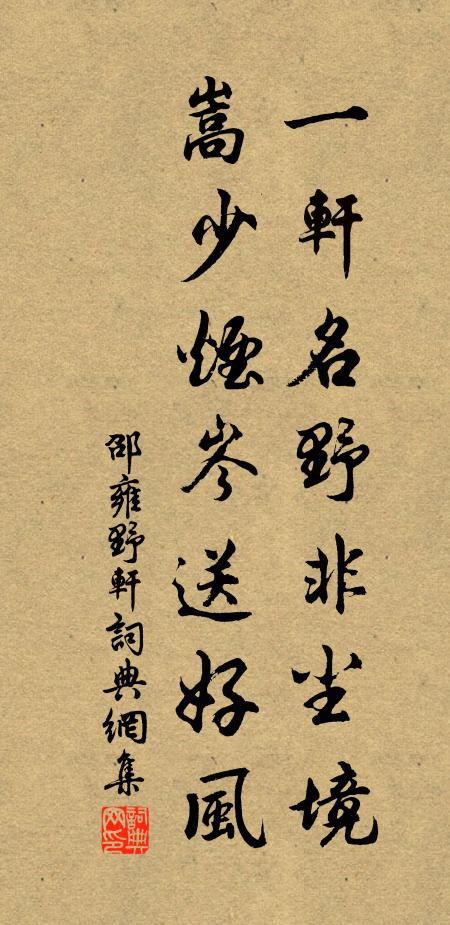 一軒名野非尘境
嵩少煙岑送好風
邵雍野軒詞典網集
詞典网印